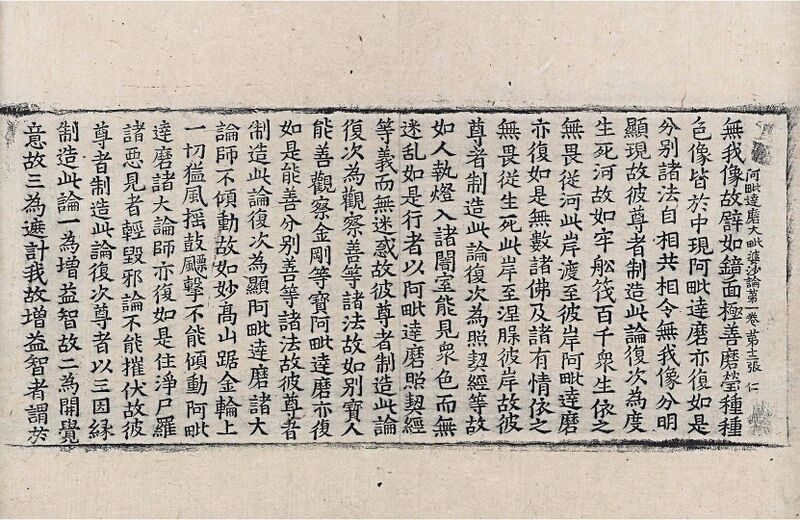 阿毗達磨大毗婆沙論第一卷 第十二張 仁
無我像故譬如鏡面極善磨瑩種種
色像皆於中現阿毗達磨亦復如是
分別諸法自相共相令無我像分明
顯現故彼尊者制造此論復次為度
生死河故如牢舩筏百千衆生依之
無畏從河此岸渡至彼岸阿毗達磨
亦復如是無數諸佛及諸有情依之
無畏從生死此岸至涅槃彼岸故彼
尊者制造此論復次為照契經等故
如人執燈入諸闇室能見衆色而無
迷乱如是行者以阿毗達磨照契經
等義而無迷惑故彼尊者制造此論
復次為觀察善等諸法故如別寶人
能善觀察金剛等寶阿毗達磨亦復
如是能善分別善等諸法故彼尊者
制造此論復次為顯阿毗達磨諸大
論師不傾動故如妙高山踞金輪上
一切猛風搖鼓飄擊不能傾動阿毗
達磨諸大論師亦復如是住淨尸羅
諸惡見者輕毀邪論不能摧伏故彼
尊者制造此論復次尊者以三因緣
制造此論一為增益智故二為開覺
意故三為遮計我故增益智者謂於